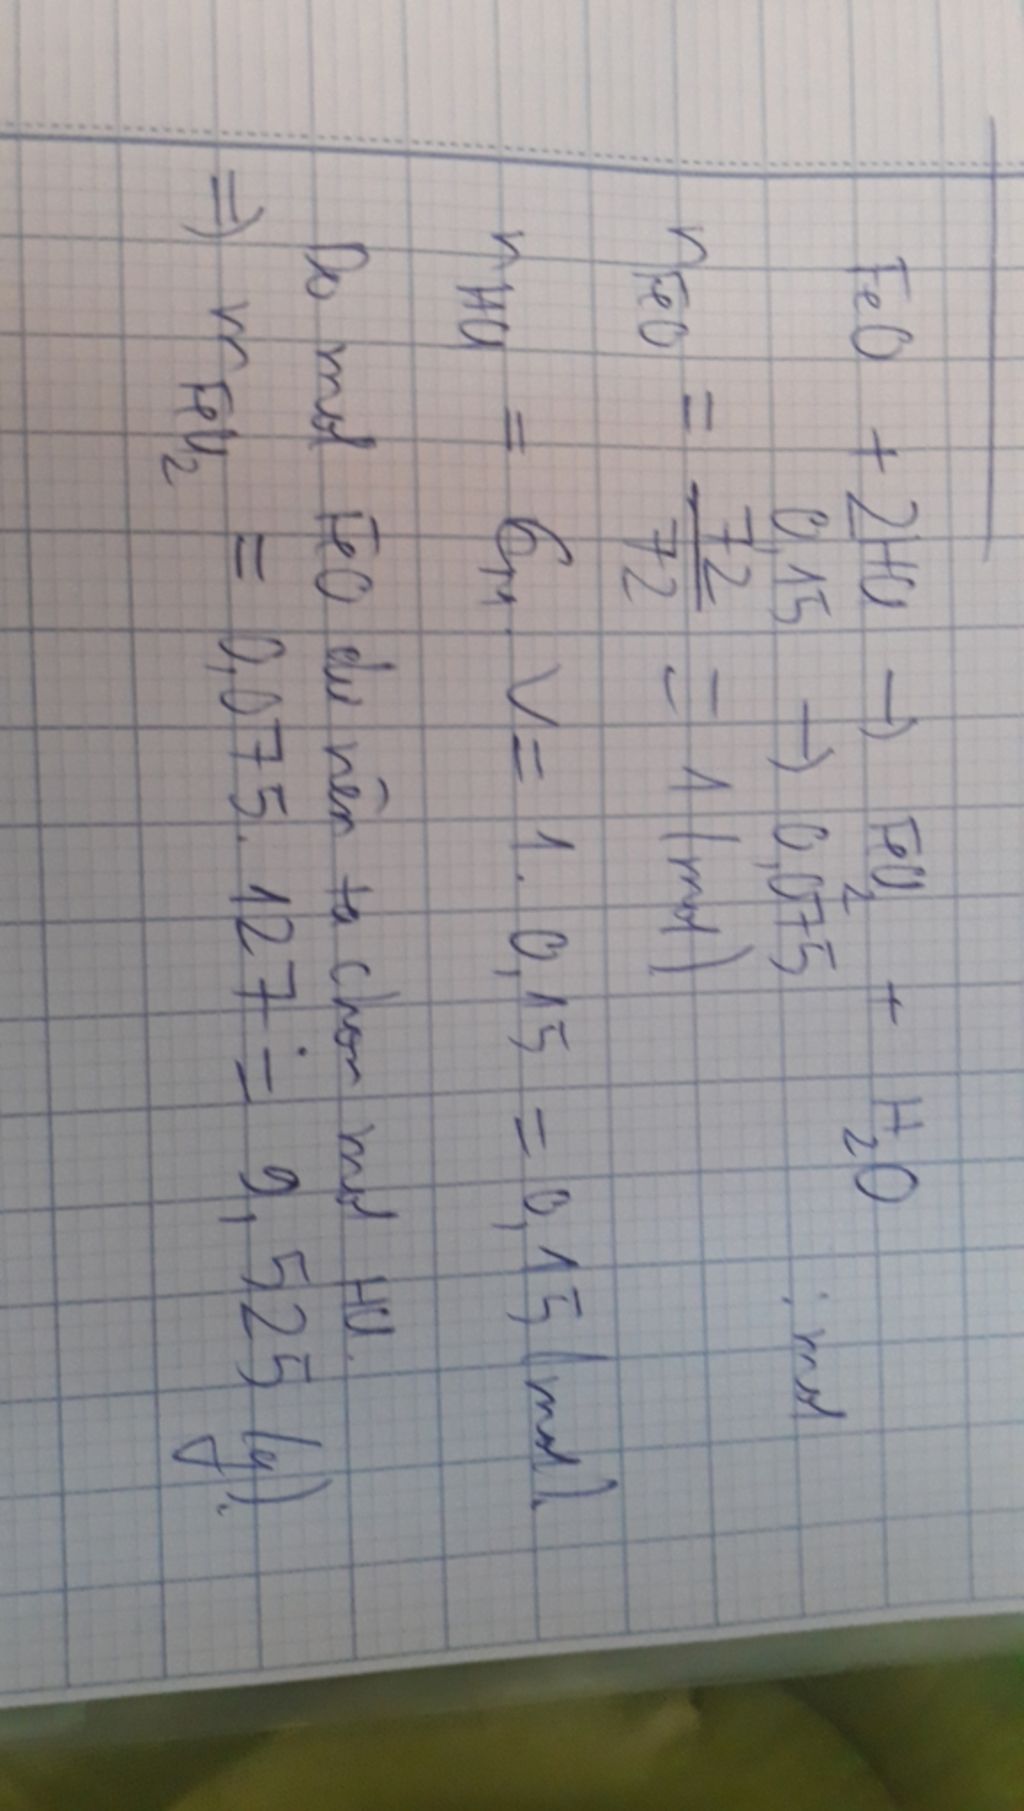 FeO + 2HCl → FeCl2 + H2O
0,15 → 0,075 : mol
nFeO = 72/72 = 1 (mol)
nHCl = CM. V = 1. 0,15 = 0,15 (mol).
Do mol FeO dư nên ta chọn mol HCl.
=> mFeCl2 = 0,075. 127 = 9,525 (g).